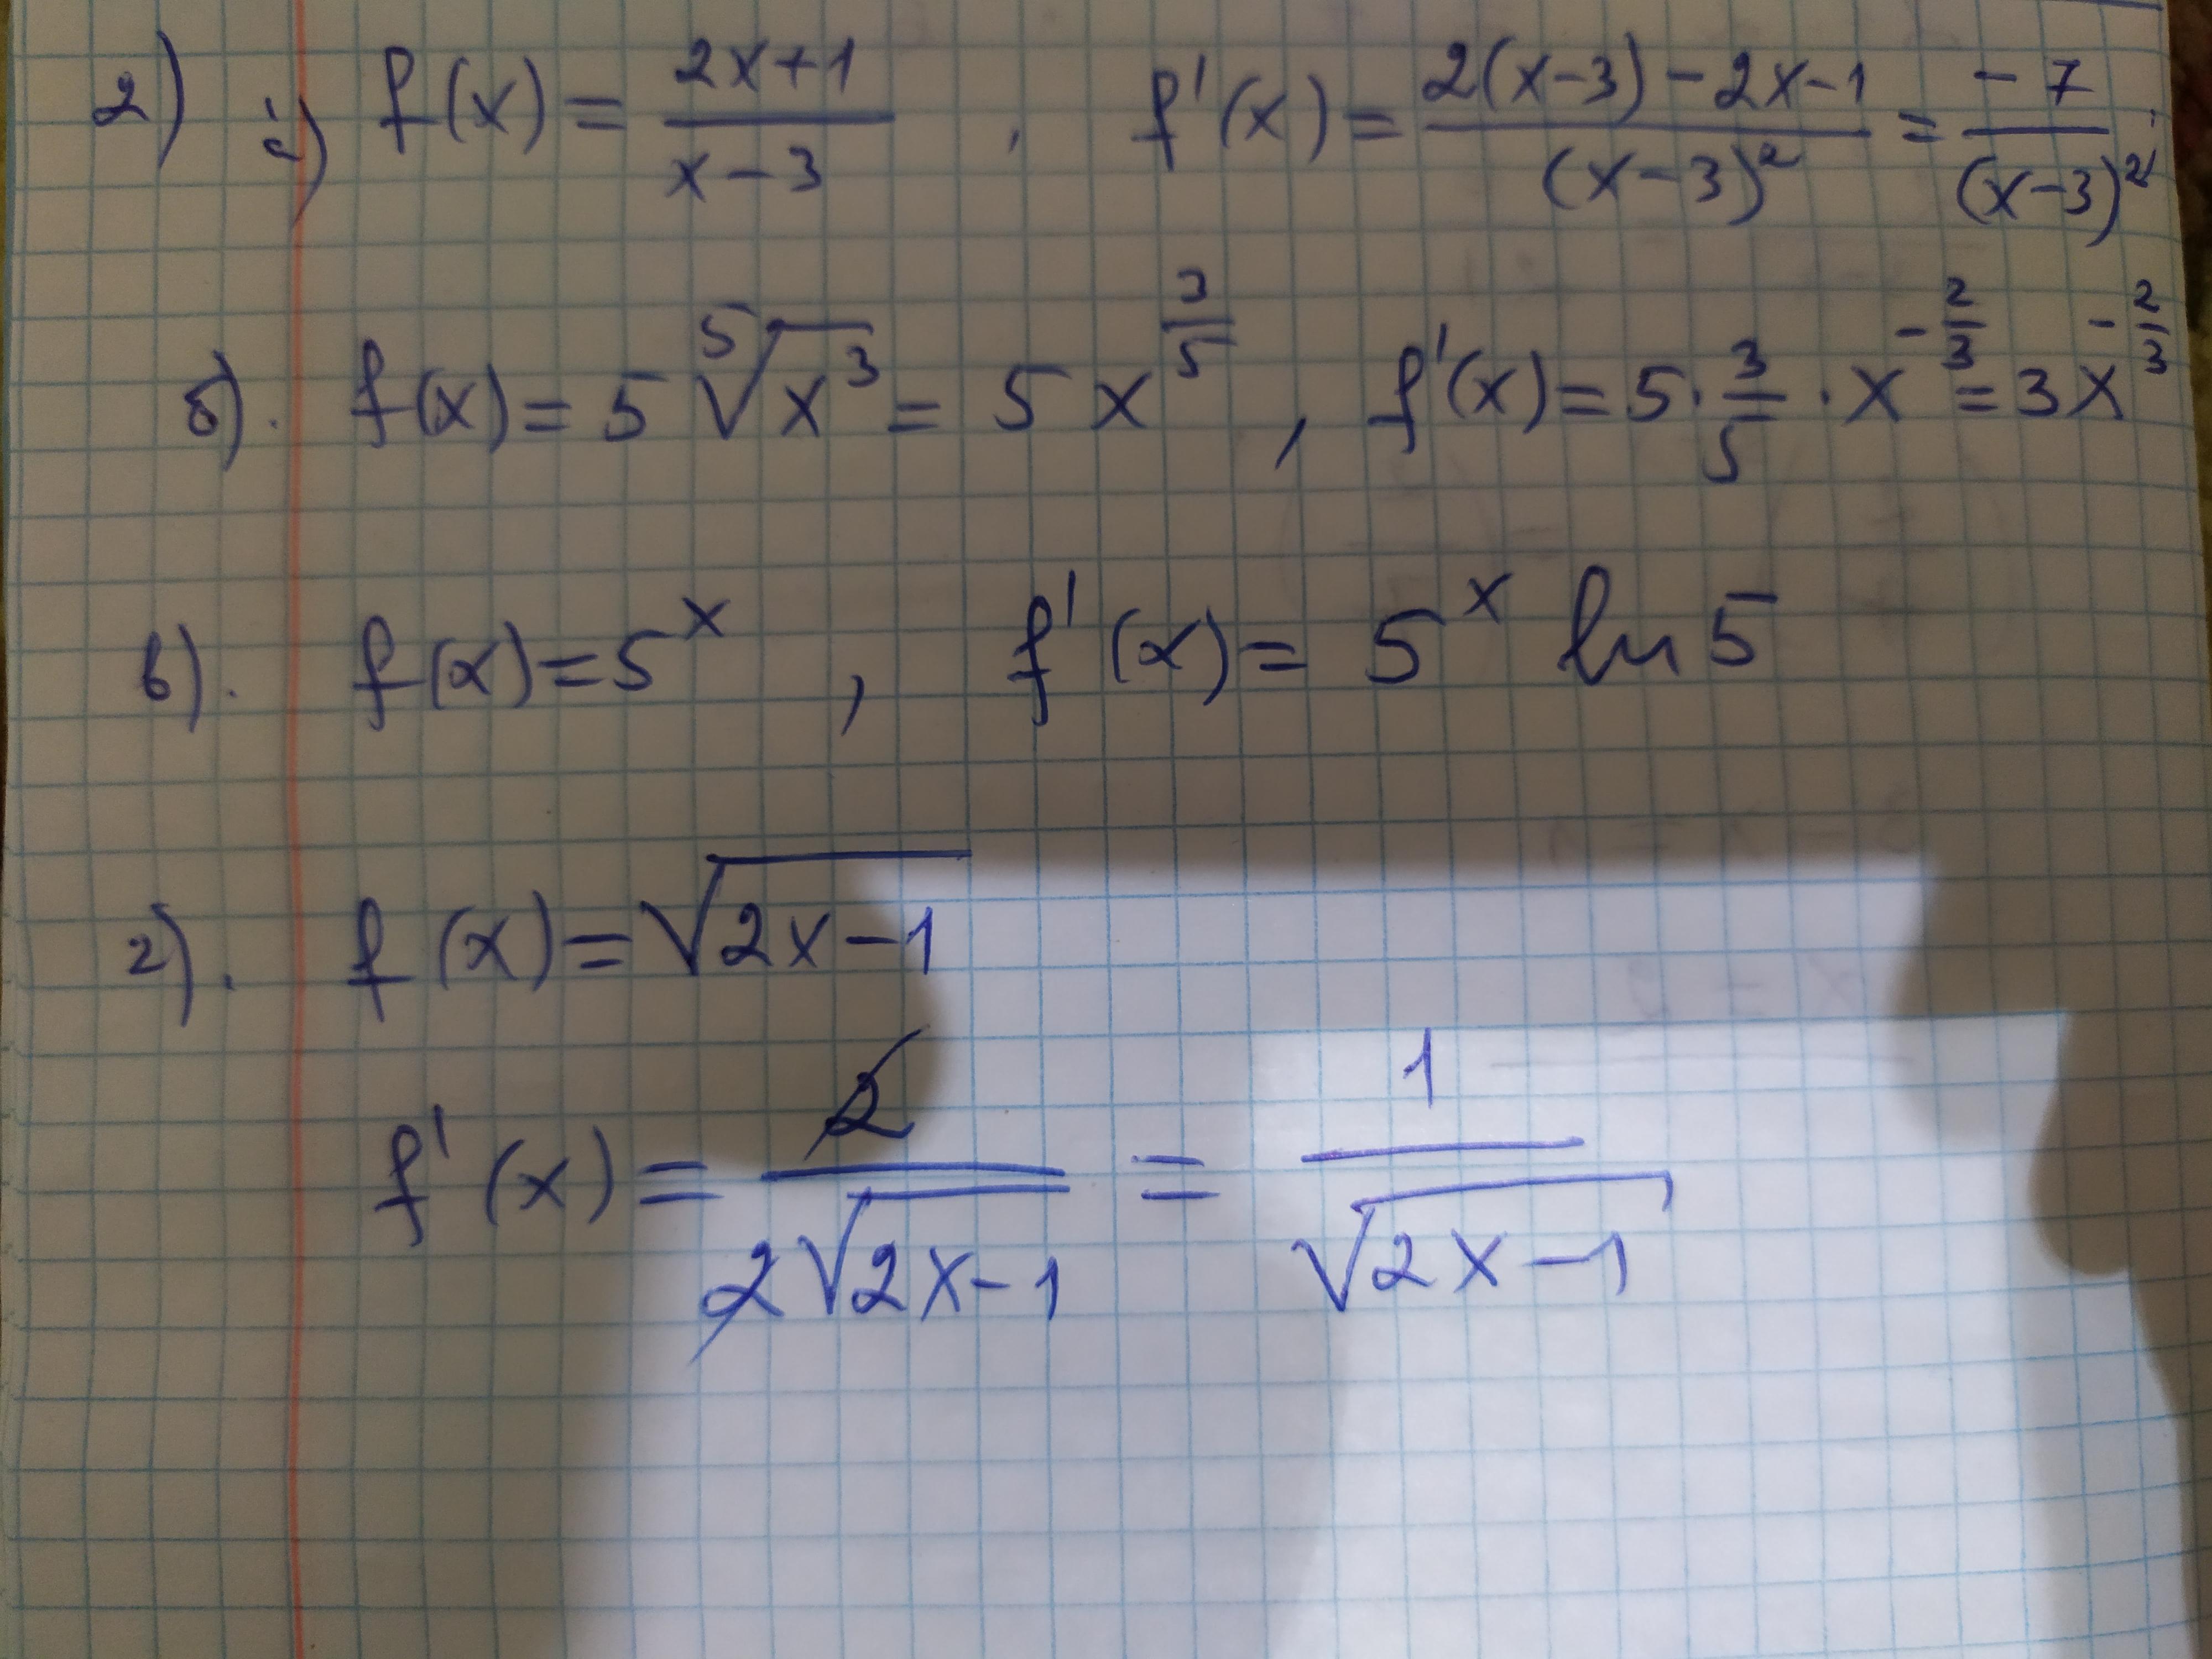 2) а) f(x) = (2x+1)/(x−3) , f'(x) = (2(x−3)−2x−1)/(x−3)² = −7/(x−3)²
б). f(x) = 5 ⁵√(x³) = 5x^(3/5) , f'(x) = 5·3/5·x^(−2/3) = 3x^(−2/3)
в). f(x) = 5^x , f'(x) = 5^x ln 5
г). f(x) = √(2x−1)
f'(x) = 2/(2√(2x−1)) = 1/√(2x−1)